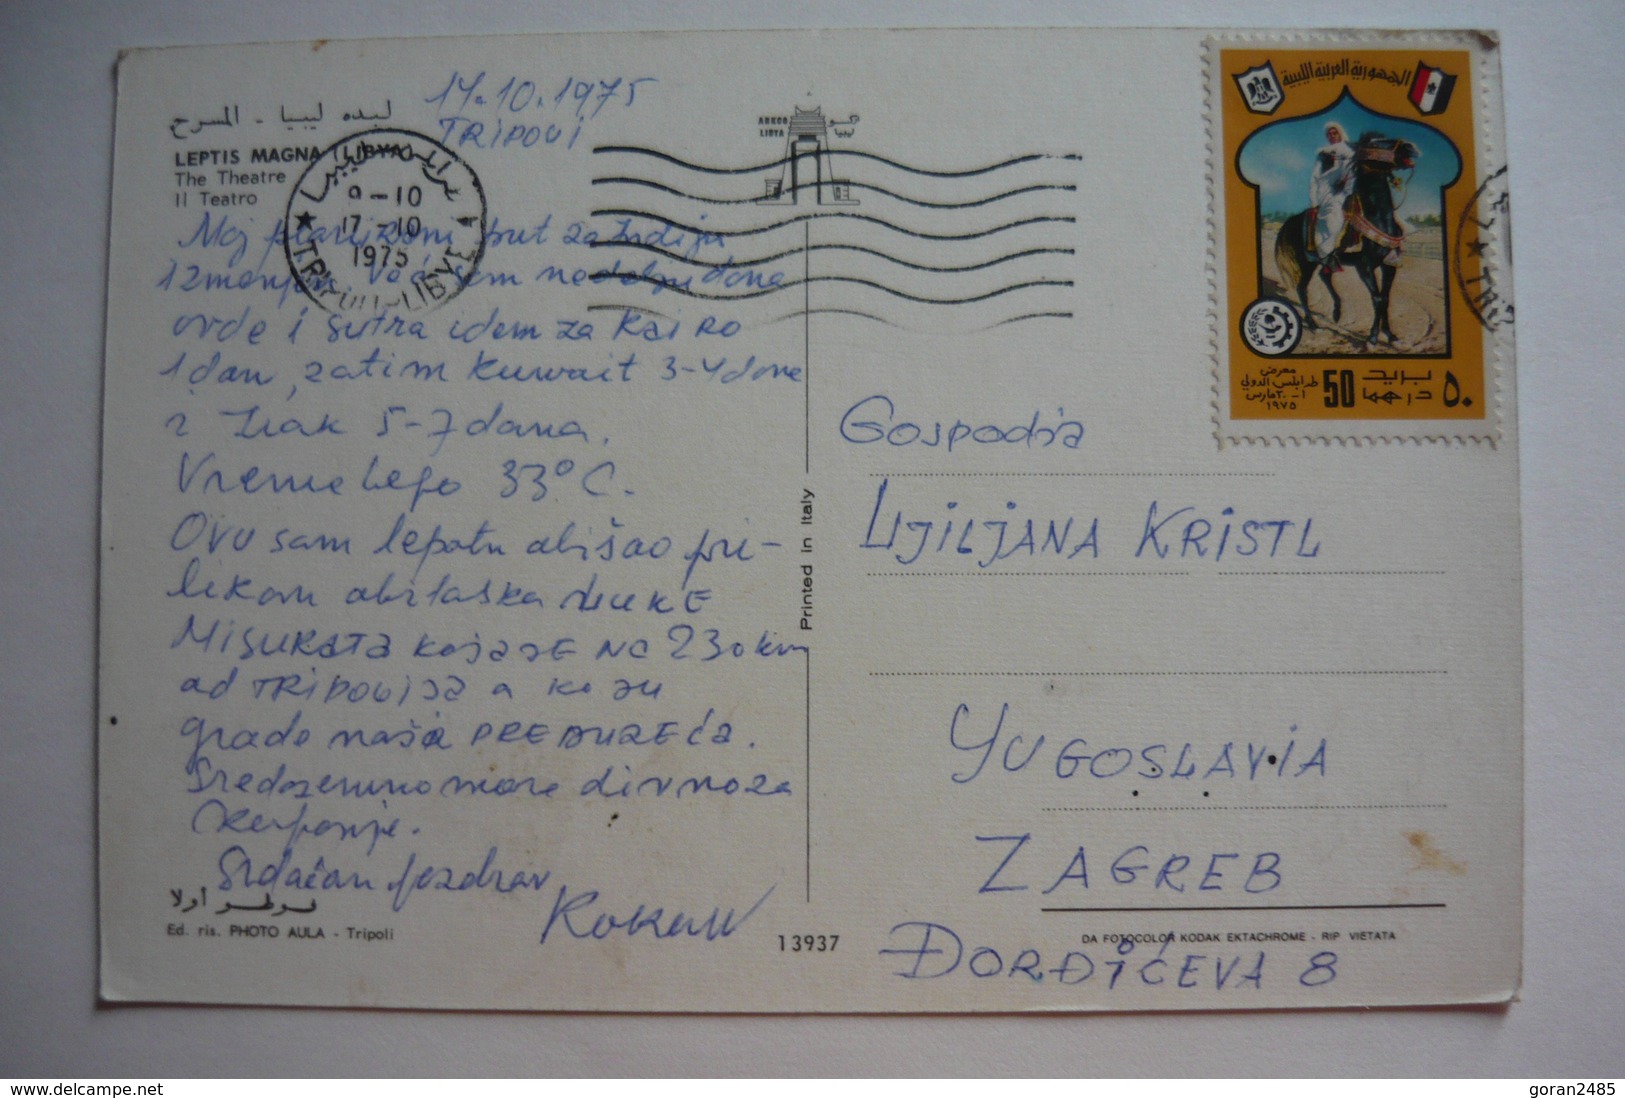 لبده ليبيا - المسرح
LEPTIS MAGNA (LIBYA)
The Theatre
Il Teatro
14.10.1975
TRIPOLI
9-10
17-10
1975
TRIPOLI-LIBYE
ARKCO
LIBYA
ليبيا
الجمهورية العربية الليبية
معرض
طرابلس الدولي
١-٣٠ مارس
١٩٧٥
50
بريد
درهما
٥٠
Moj planirani put za Indiju
izmenjen. Već sam nedelju dana
ovde i sutra idem za KAIRO
1 dan, zatim Kuwait 3-4 dana
i Irak 5-7 dana.
Vreme lepo 33°C.
Ovu sam lepotu obišao pri-
likom obilaska LUKE
MISURATA koja JE NA 230 km
od TRIPOLIJA a koju
grade naša PREDUZEĆA.
Sredozemno more divno za
kupanje.
Srdačan pozdrav
Printed in Italy
Gospodja
LJILJANA KRISTL
YUGOSLAVIA
ZAGREB
ĐORĐIĆEVA 8
Ed. ris. PHOTO AULA - Tripoli
13937
DA FOTOCOLOR KODAK EKTACHROME - RIP VIETATA
delcampe.net
goran2485